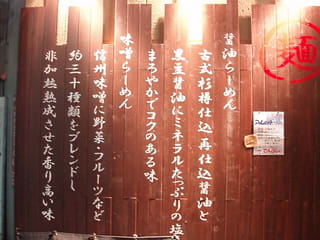 醤油らーめん
古式杉樽仕込再仕込醤油と
黒豆醤油にミネラルたっぷりの塩
まろやかでコクのある味
味噌らーめん
信州味噌に野菜フルーツなど
約三十種類をブレンドし
非加熱熟成させた香り高い味
麺